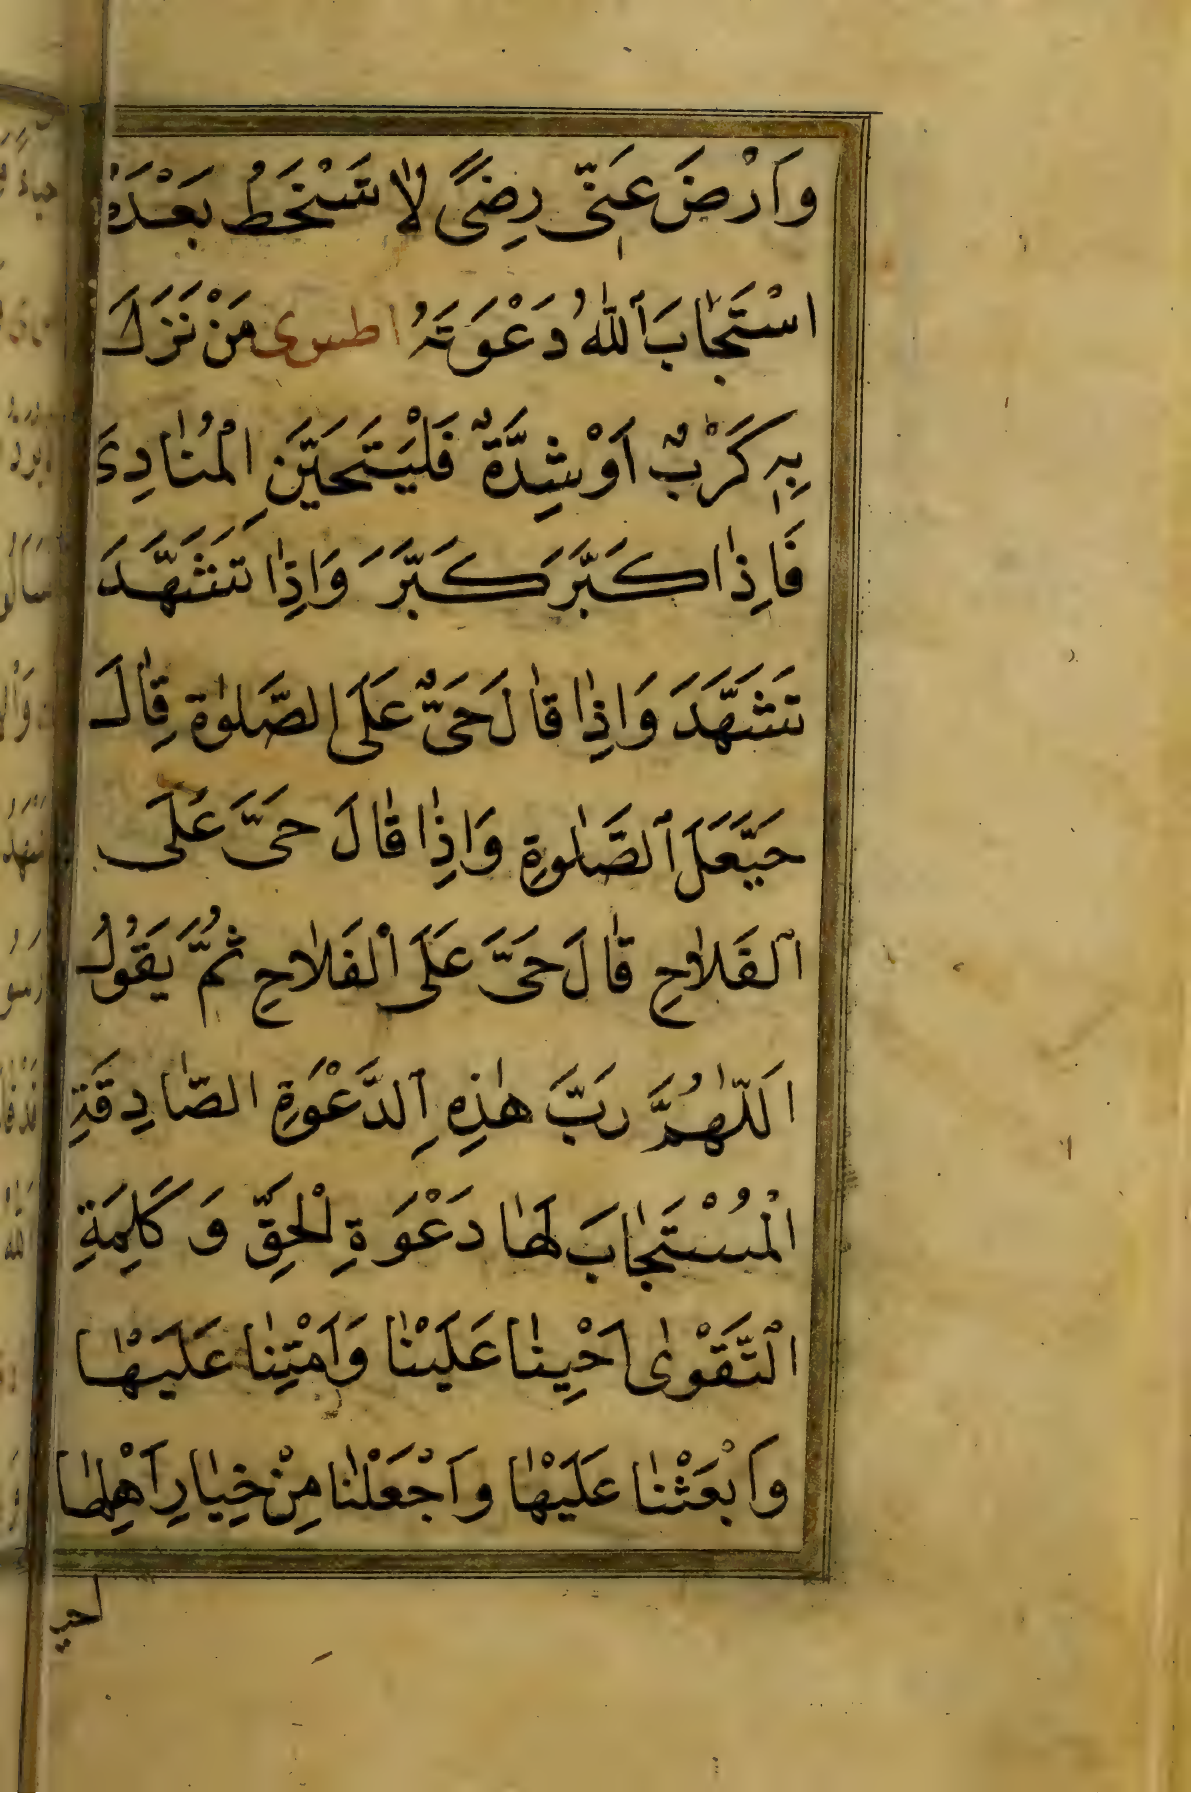 وَارْضَ عَنّى رِضىً لاٰ تَسْخَطُ بَعْدَهُ
اسْتَجٰابَ اللّٰهُ دَعْوَتَهُ ا طس ى مَنْ نَزَلَ
بِهِ كَرْبٌ اَوْ شِدَّةٌ فَلْيَتَحَيَّنِ الْمُنٰادِىَ
فَاِذٰا كَبَّرَ كَبَّرَ وَاِذٰا تَشَهَّدَ
تَشَهَّدَ وَاِذٰا قٰالَ حَىَّ عَلَى الصَّلوٰةِ قٰالَ
حَيَّعَلَ الصَّلٰوةِ وَاِذٰا قٰالَ حَىَّ عَلَى
الفَلاٰحِ قٰالَ حَىَّ عَلَى الْفَلاٰحِ ثُمَّ يَقُولُ
اَللّٰهُمَّ رَبَّ هٰذِهِ الدَّعْوَةِ الصّٰادِقَةِ
الْمُسْتَجٰابَ لَهٰا دَعْوَةِ الْحَقِّ وَ كَلِمَةِ
التَّقْوٰى اَحْيِنٰا عَلَيْنٰا وَاَمْتِنٰا عَلَيْهٰا
وَابْعَثْنٰا عَلَيْهٰا وَاجْعَلْنٰا مِنْ خِيٰارِ اَهْلِهٰا
احي